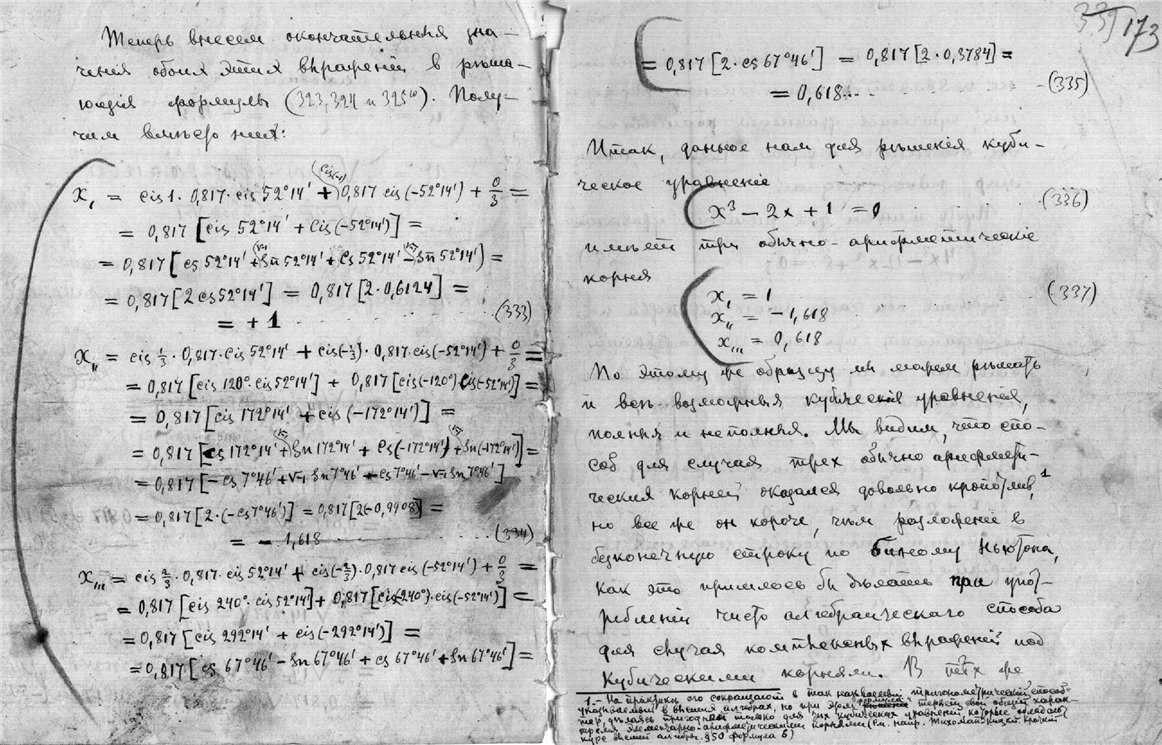 Теперь внесем окончательныя зна-
ченія обоихъ этихъ выраженій в рѣша-
ющія формулы (323, 324 и 325). Полу-
чим вмѣсто них:
x, = cis 1 · 0,817 · cis 52°14' + 0,817 cis (-52°14') + 0/3 =
= 0,817 [cis 52°14' + cis (-52°14')] =
= 0,817 [cs 52°14' + sn 52°14' + cs 52°14' - sn 52°14') =
= 0,817 [2 cs 52°14'] = 0,817 [2 · 0,6124] =
= + 1 (333)
x,, = cis 1/3 · 0,817 · cis 52°14' + cis(-1/3) · 0,817 · cis(-52°14') + 0/3 =
= 0,817 [cis 120° · cis 52°14'] + 0,817 [cis(-120°) · cis(-52°14')] =
= 0,817 [cis 172°14' + cis (-172°14')] =
= 0,817 [cs 172°14' + sn 172°14' + cs(-172°14') + sn(-172°14')] =
= 0,817 [-cs 7°46' + √-1 sn 7°46' - cs 7°46' - √-1 sn 7°46']
= 0,817 [2 · (-cs 7°46')] = 0,817 [2(-0,9908] =
= - 1,618 (334)
x,,, = cis 2/3 · 0,817 · cis 52°14' + cis(-2/3) · 0,817 cis (-52°14') + 0/3 =
= 0,817 [cis 240° · cis 52°14'] + 0,817 [cis(-240°) · cis(-52°14')] =
= 0,817 [cis 292°14' + cis (-292°14')] =
= 0,817 [cs 67°46' - sn 67°46' + cs 67°46' + sn 67°46'] =
173
= 0,817 [2 · cs 67°46'] = 0,817 [2 · 0,3784] =
= 0,618... (335)
Итак, данное нам для рѣшенія куби-
ческое уравненіе
x³ - 2x + 1 = 0 (336)
имѣет три обычно-ариѳметическіе
корня
x, = 1 (337)
x,, = -1,618
x,,, = 0,618
По этому же образцу мы можем рѣшать
и всѣ возможныя кубическія уравненія,
полныя и неполныя. Мы видим, что спо-
соб для случая трех обычно ариѳмети-
ческих корней оказался довольно кропотлив,¹
но все же он короче, чѣм разложеніе в
безконечную строку по биному Ньютона,
как это пришлось бы дѣлать при упот-
ребленіи чисто алгебраическаго способа
для случая комплексных выраженій под
кубическими корнями. В тѣх же
1.- На практикѣ его сокращают в так называемый тригонометрический способ
указываемый в высших алгебрах, но при этом теряет свой общий харак-
тер, дѣлаясь пригодным только для тѣх кубических уравнений которые обладают
тремя элементарно-ариѳметическими корнями (См. напр. Тихомандрицкий. Краткий
курс высшей алгебры. §50 формула 6)